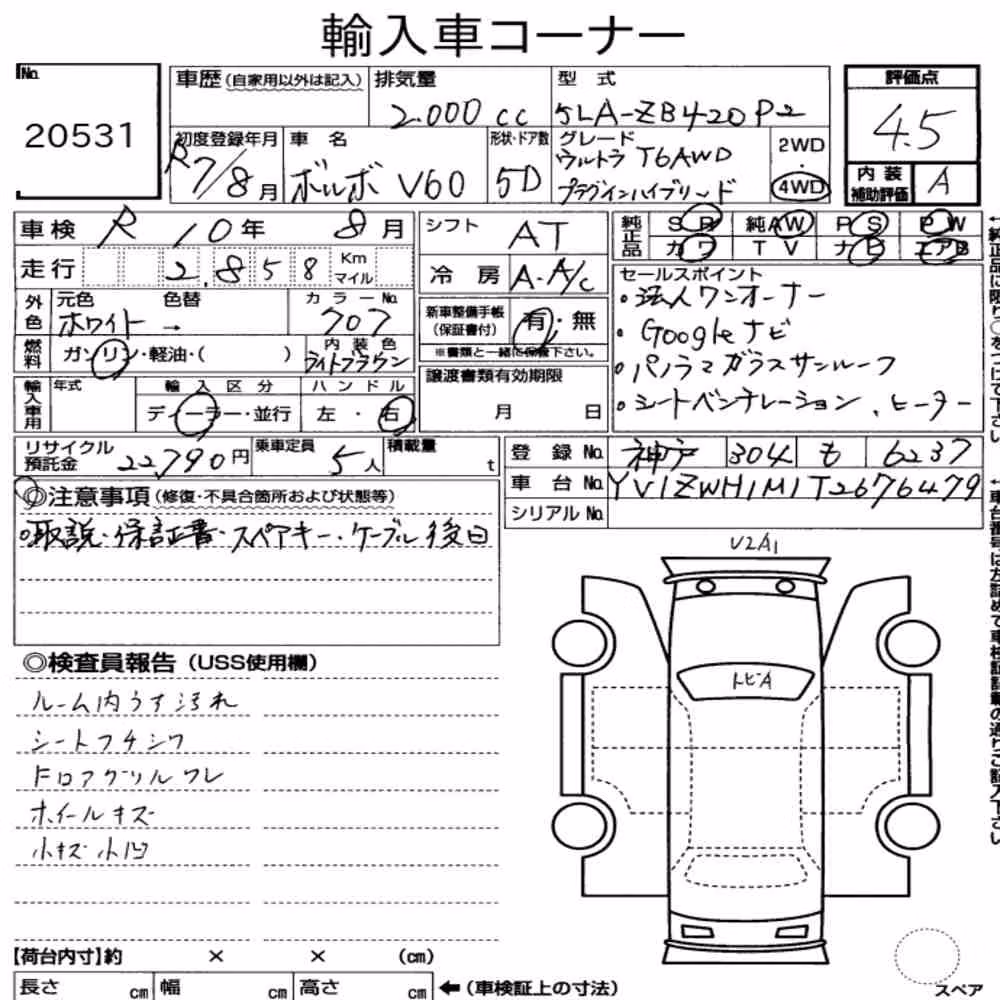 輸入車コーナー
No. 20531
車歴 (自家用以外は記入)
排気量 2.000 cc
型 式 5LA-ZB420P2
評価点 4.5
内装補助評価 A
初度登録年月 R7/8月
車 名 ボルボ V60
形状・ドア数 5D
グレード ウルトラ T6AWD
プラグインハイブリード
2WD・4WD
車検 R 10年 8月
シフト AT
純正品 SR 純AW PS PW
カワ TV ナビ エアB
走行 2,858 Km マイル
冷 房 A・A/c
セールスポイント
・法人ワンオーナー
・Googleナビ
・パノラマガラスサンルーフ
・シートベンチレーション、ヒーター
外色 元色 ホワイト → 色替
カラーNo. 707
新車整備手帳(保証書付) 有・無
※書類と一緒に保管下さい。
燃料 ガソリン・軽油・( )
内装色 ライトブラウン
譲渡書類有効期限
月 日
輸入車用 年式
輸入区分 ディーラー・並行
ハンドル 左・右
リサイクル預託金 22,790円
乗車定員 5人
積載量 t
登 録 No. 神戸 304 も 6237
車 台 No. YV1ZWH1M1T2676479
シリアルNo.
◎注意事項 (修復・不具合箇所および状態等)
○取説・保証書・スペアキー・ケーブル後日
◎検査員報告 (USS使用欄)
ルーム内うす汚れ
シートフチシワ
Fロアグリルワレ
ホイールキズ
小キズ小凹
U2A1
トビA
【荷台内寸】約 × × (cm)
長さ cm 幅 cm 高さ cm ←(車検証上の寸法)
スペア
←純正品に限り○をつけて下さい
←車台番号は左詰めで車検証記載の通りご記入下さい